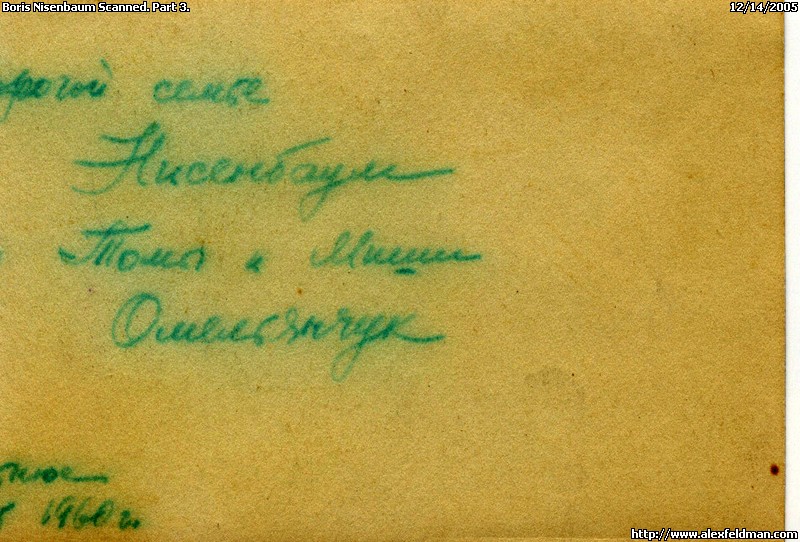 Boris Nisenbaum Scanned. Part 3.
12/14/2005
орогой семье
Нисенбаум
Томы и Миши
Омельянчук
1960 г.
http://www.alexfeldman.com